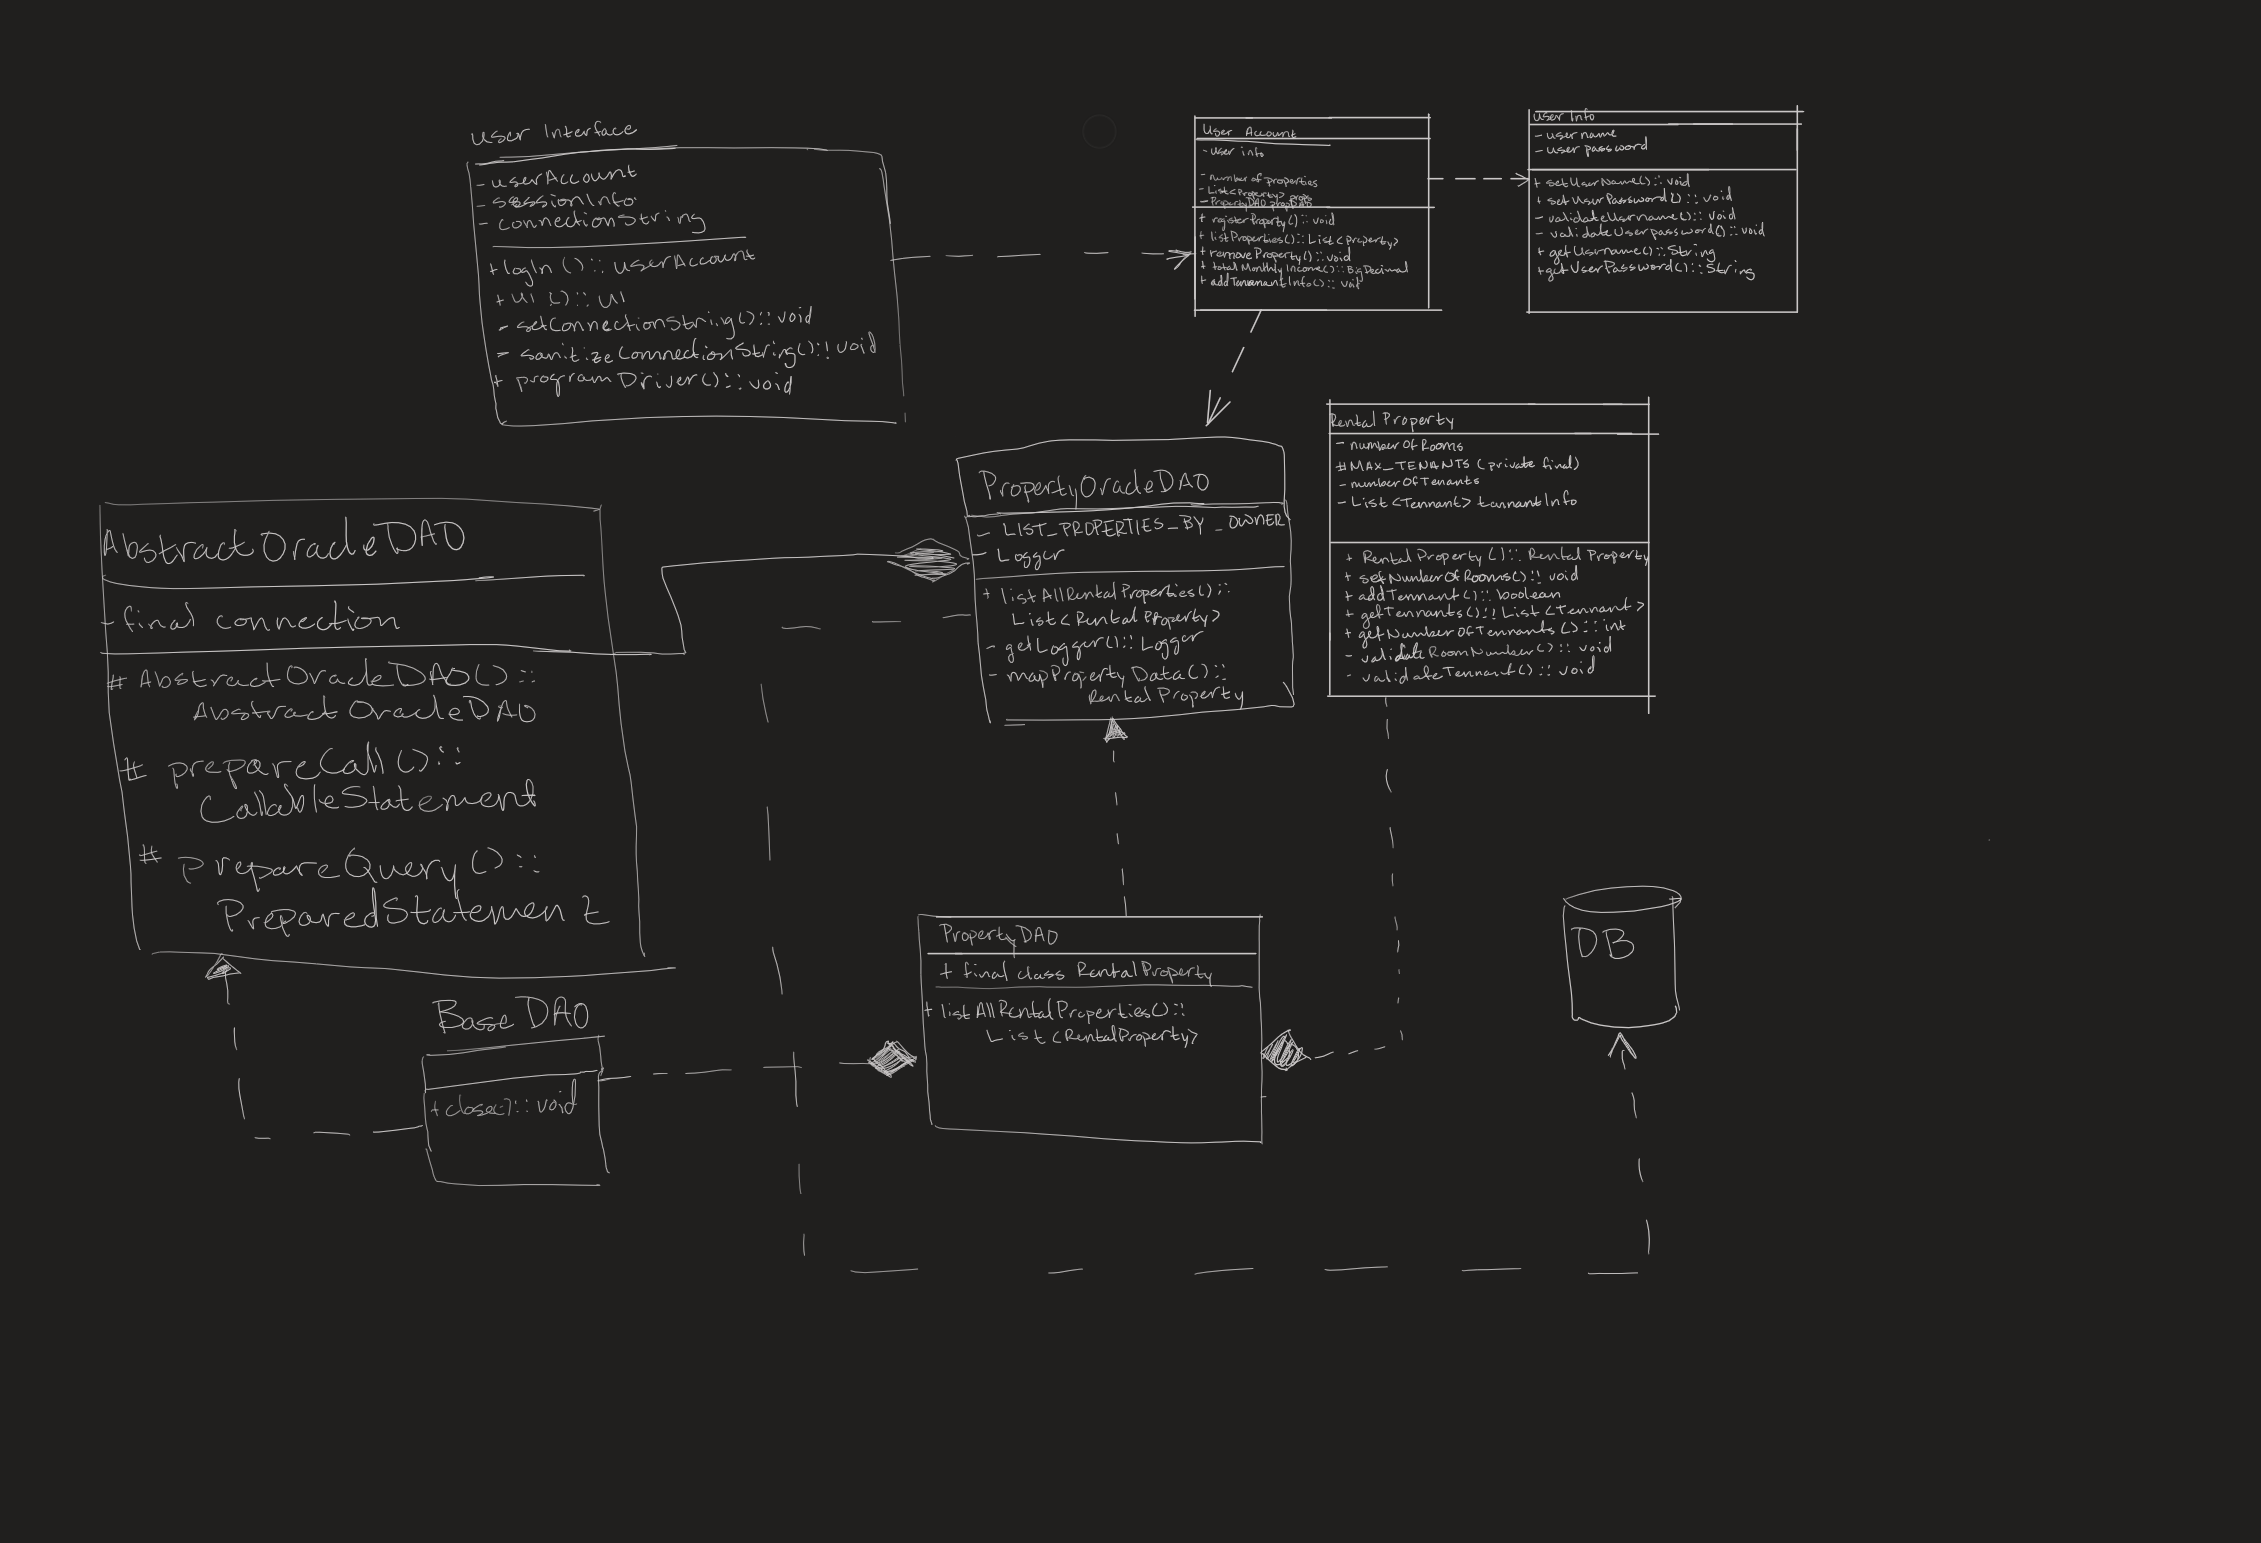 User Interface
- userAccount
- sessionInfo
- connectionString
+ logIn ( ) :: userAccount
+ UI ( ) :: UI
- setConnectionString() :: void
- sanitizeConnectionString() :: void
+ programDriver() :: void
User Account
- user info
- number of properties
- List<Property> props
- PropertyDAO propDAO
+ registerProperty() :: void
+ listProperties() :: List<Property>
+ removeProperty() :: void
+ totalMonthlyIncome() :: BigDecimal
+ addTennantInfo() :: void
User Info
- user name
- user password
+ setUserName() :: void
+ setUserPassword() :: void
- validateUsername() :: void
- validateUserpassword() :: void
+ getUsername() :: String
+ getUserPassword() :: String
Rental Property
- numberOfRooms
# MAX_TENANTS (private final)
- numberOfTenants
- List<Tennant> tannantInfo
+ RentalProperty () :: Rental Property
+ setNumberOfRooms() :: void
+ addTennant() :: boolean
+ getTennants() :: List<Tennant>
+ getNumberOfTennants () :: int
- validateRoomNumber() :: void
- validateTennant() :: void
PropertyOracleDAO
- LIST_PROPERTIES_BY_OWNER
- Logger
+ listAllRentalProperties() ::
List<Rental Property>
- getLogger() :: Logger
- mapPropertyData() ::
Rental Property
AbstractOracleDAO
- final connection
# AbstractOracleDAO() ::
AbstractOracleDAO
# prepareCall () ::
CallableStatement
# prepareQuery () ::
PreparedStatement
Base DAO
+ close() :: void
PropertyDAO
+ final class RentalProperty
+ listAllRentalProperties() ::
List<RentalProperty>
DB